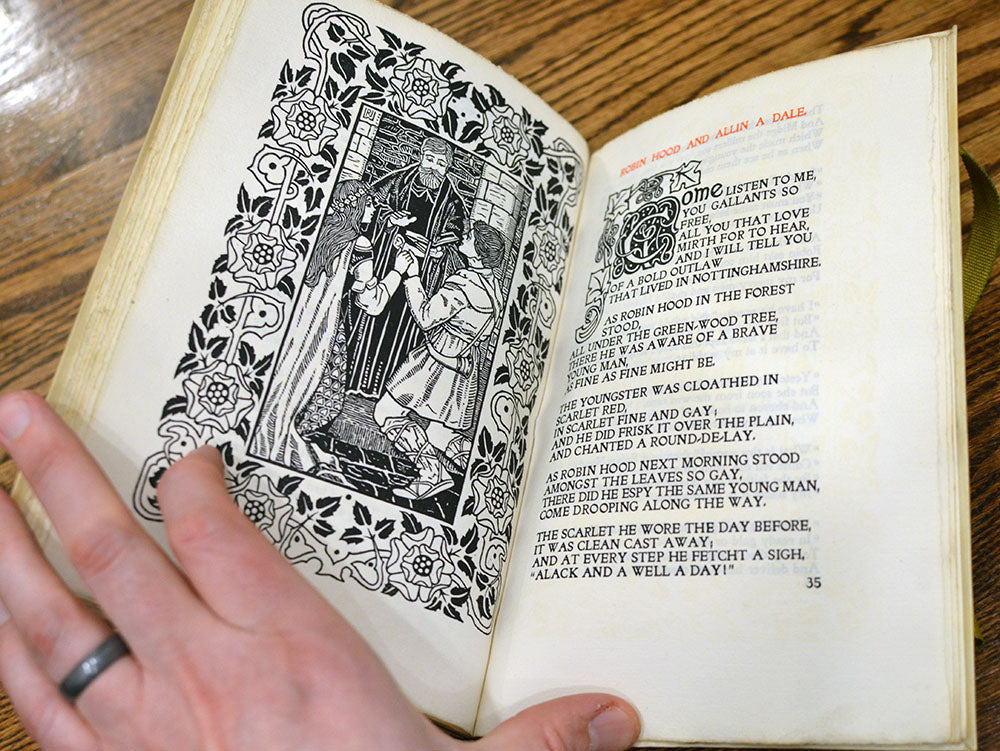 ROBIN HOOD AND ALLIN A DALE.
Come LISTEN TO ME,
YOU GALLANTS SO
FREE,
ALL YOU THAT LOVE
MIRTH FOR TO HEAR,
AND I WILL TELL YOU
OF A BOLD OUTLAW
THAT LIVED IN NOTTINGHAMSHIRE.
AS ROBIN HOOD IN THE FOREST
STOOD,
ALL UNDER THE GREEN-WOOD TREE,
THERE HE WAS AWARE OF A BRAVE
YOUNG MAN,
AS FINE AS FINE MIGHT BE.
THE YOUNGSTER WAS CLOATHED IN
SCARLET RED,
IN SCARLET FINE AND GAY;
AND HE DID FRISK IT OVER THE PLAIN,
AND CHANTED A ROUND-DE-LAY.
AS ROBIN HOOD NEXT MORNING STOOD
AMONGST THE LEAVES SO GAY,
THERE DID HE ESPY THE SAME YOUNG MAN,
COME DROOPING ALONG THE WAY.
THE SCARLET HE WORE THE DAY BEFORE,
IT WAS CLEAN CAST AWAY;
AND AT EVERY STEP HE FETCHT A SIGH,
"ALACK AND A WELL A DAY!"
35